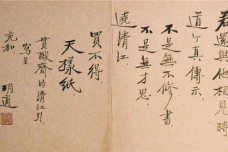 若還與他相見時
道个真傳示
不是無不修書
不是無才思
遶清江
買不得
天樣紙
貫酸齋的清江引
寫呈
充和
胡適